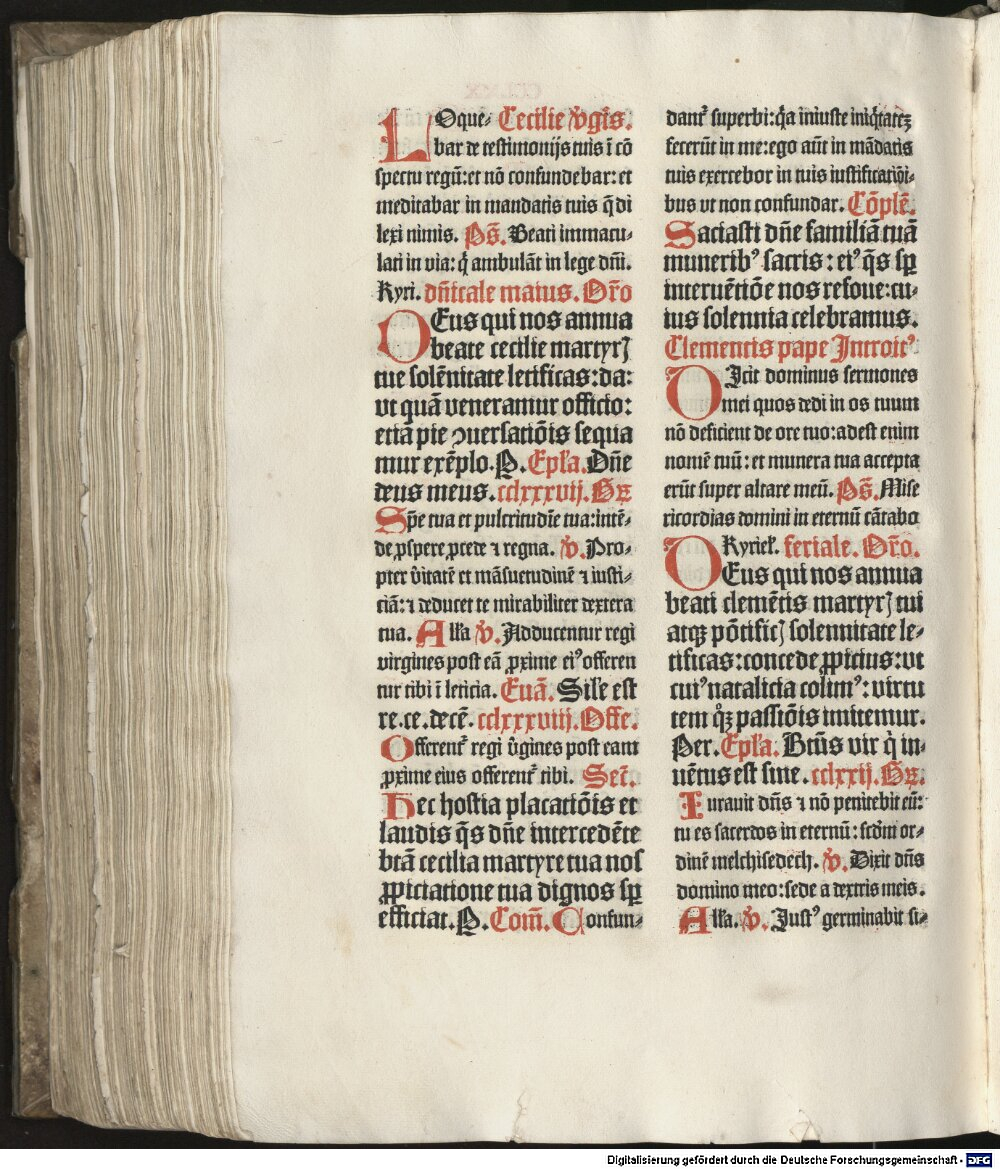 LOque- Cecilie v̓gĩs.
bar de testimonijs tuis ĩ cõ
spectu regũ: et nõ confundebar: et
meditabar in mandatis tuis q̃ di
lexi nimis. Ps̃. Beati immacu-
lati in via: q̓ ambulãt in lege dñi.
Kyri. dñicale maius. Or̃o
DEus qui nos annua
beate cecilie martyrꝭ
tue solẽnitate letificas: da:
vt quã veneramur officio:
etiã pie ꝯuersatiõis sequa
mur exẽplo. P. Epl̓a. Dñe
deus meus. cclxxxvij. Gr̃
Spẽ tua et pulcritudĩe tua: intẽ-
de ꝓspere ꝓcede ⁊ regna. v̓. Pro-
pter v̓itatẽ et mãsuetudinẽ ⁊ iusti-
ciã: ⁊ deducet te mirabiliter dextera
tua. Alla v̓. Adducentur regi
virgines post eã ꝓxime eiꝰ offeren
tur tibi ĩ leticia. Euã. Sil̓e est
re. ce. decẽ. cclxxxviij. Offe.
Offerent̃ regi v̓gines post eam
ꝓxime eius offerent̃ tibi. Secr̃.
Hec hostia placatiõis et
laudis q̃s dñe intercedẽte
btã cecilia martyre tua nos
ꝓpiciatione tua dignos sꝑ
efficiat. P. Com̃. Confun-
dant̃ superbi: q̓a iniuste iniq̓tatẽ
fecerũt in me: ego aũt in mãdatis
tuis exercebor in tuis iustificatiõi-
bus vt non confundar. Cõplẽ.
Saciasti dñe familiã tuã
muneribꝰ sacris: eiꝰ q̃s sꝑ
interuẽtiõe nos refoue: cu-
ius solennia celebramus.
Clementis pape Introitꝰ
DIcit dominus sermones
mei quos dedi in os tuum
nõ deficient de ore tuo: adest enim
nomẽ tuũ: et munera tua accepta
erũt super altare meũ. Ps̃. Mise
ricordias domini in eternũ cãtabo
Kyriel̓. feriale. Or̃o.
DEus qui nos annua
beati clemẽtis martyrꝭ tui
atqꝫ põtificꝭ solennitate le-
tificas: concede ꝓpicius: vt
cuiꝰ natalicia colimꝰ: virtu
tem qꝫ passiõis imitemur.
Per. Epl̓a. Btũs vir q̓ in-
uẽtus est sine. cclxxij. Gr̃.
Iurauit dñs ⁊ nõ penitebit eũ:
tu es sacerdos in eternũ: scdm̃ or-
dinẽ melchisedech. v̓. Dixit dñs
domino meo: sede a dextris meis.
Alla. v̓. Justꝰ germinabit si-
Digitalisierung gefördert durch die Deutsche Forschungsgemeinschaft - DFG